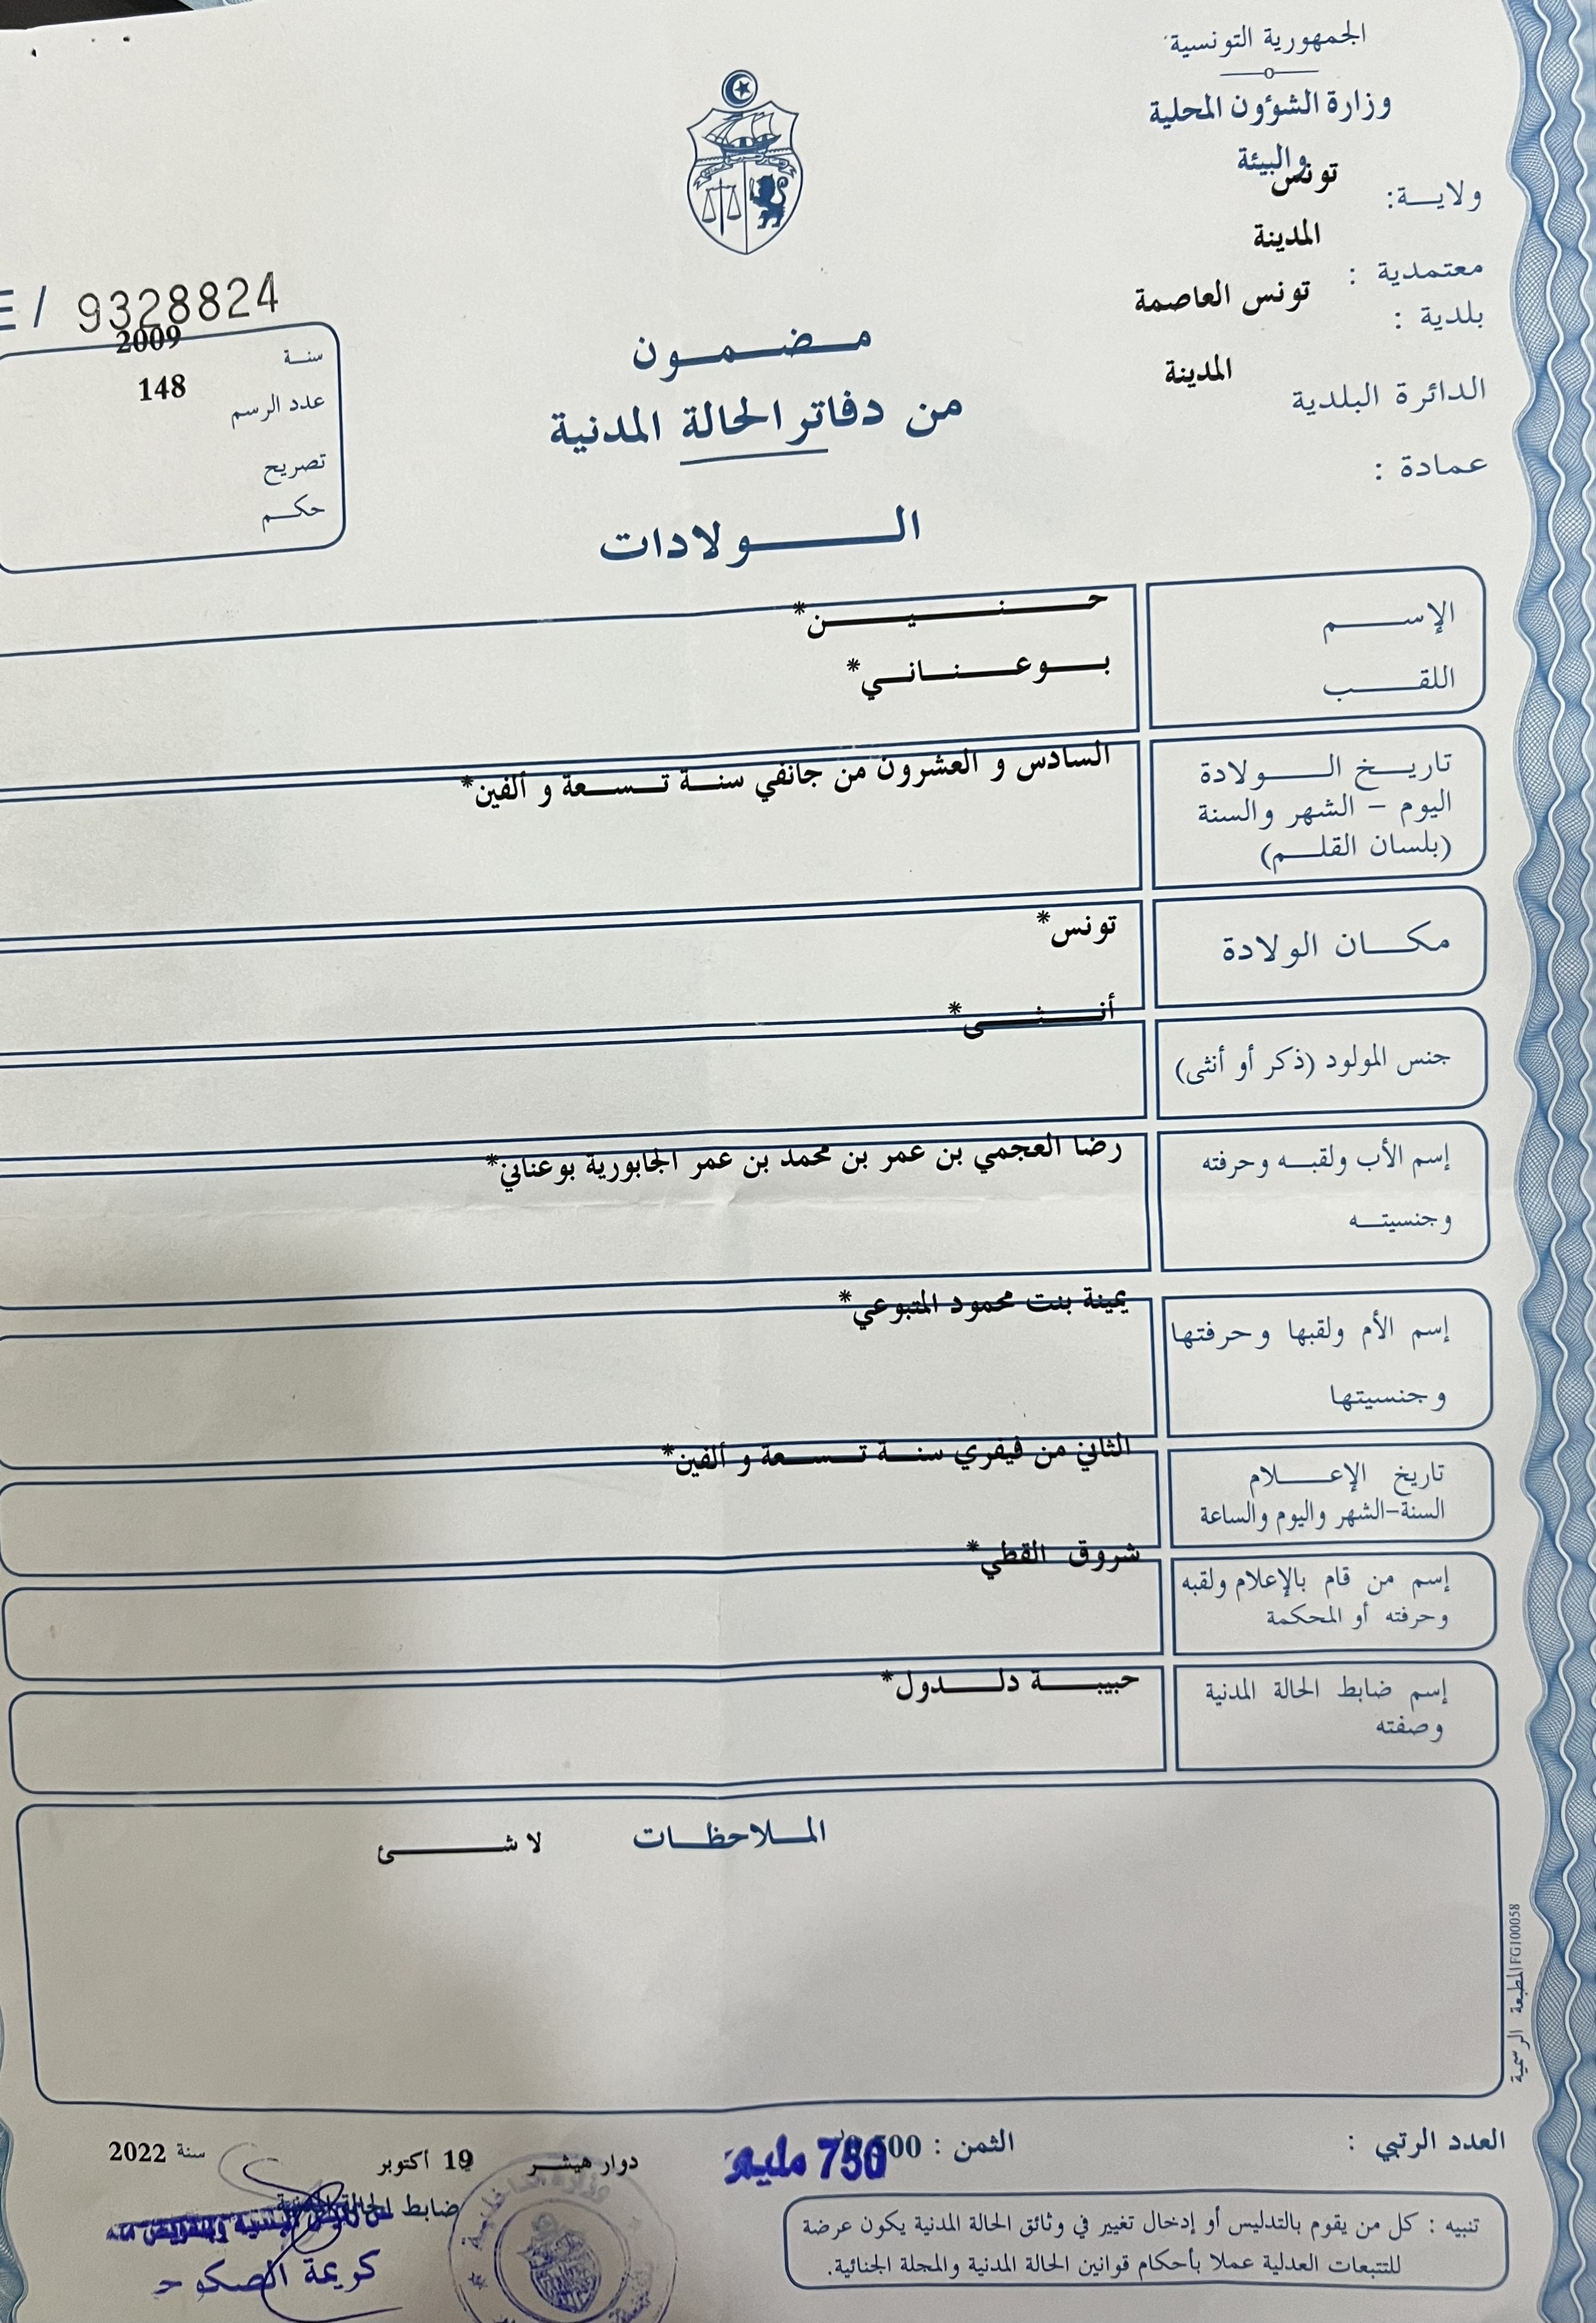 الجمهورية التونسية
وزارة الشؤون المحلية
والبيئة
ولاية: تونس
معتمدية : المدينة
بلدية : تونس العاصمة
الدائرة البلدية المدينة
عمادة :
E / 9328824
سنة 2009
عدد الرسم 148
تصريح
حكم
مضمون
من دفاتر الحالة المدنية
الولادات
الإسم حنين*
اللقب بوعناني*
تاريخ الولادة السادس و العشرون من جانفي سنة تسعة و ألفين*
اليوم - الشهر والسنة
(بلسان القلم)
مكان الولادة تونس*
جنس المولود (ذكر أو أنثى) أنثى*
إسم الأب ولقبه وحرفته رضا العجمي بن عمر بن محمد بن عمر الجابورية بوعناني*
وجنسيته
إسم الأم ولقبها وحرفتها يمينة بنت محمود المتبوعي*
وجنسيتها
تاريخ الإعلام الثاني من فيفري سنة تسعة و ألفين*
السنة-الشهر واليوم والساعة
إسم من قام بالإعلام ولقبه شروق القطي*
وحرفته أو المحكمة
إسم ضابط الحالة المدنية حبيبة دلدول*
وصفته
الملاحظات لا شئ
المطبعة الرسمية FG100058
العدد الرتبي :
الثمن : 750 مليم
دوار هيشر 19 أكتوبر سنة 2022
ضابط الحالة المدنية
تنبيه : كل من يقوم بالتدليس أو إدخال تغيير في وثائق الحالة المدنية يكون عرضة
للتتبعات العدلية عملا بأحكام قوانين الحالة المدنية والمجلة الجنائية.
كريمة